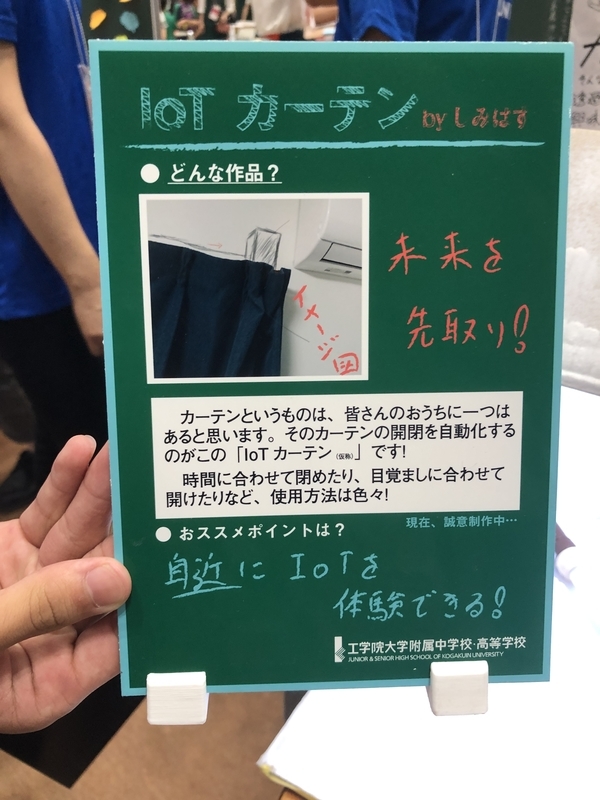 IoT カーテン by しみはす
● どんな作品？
イメージ図
未来を
先取り!
カーテンというものは、皆さんのおうちに一つは
あると思います。そのカーテンの開閉を自動化する
のがこの「IoT カーテン（仮称）」です!
時間に合わせて閉めたり、目覚ましに合わせて
開けたりなど、使用方法は色々!
現在、誠意制作中…
● おススメポイントは？
自近に IoTを
体験できる!
工学院大学附属中学校・高等学校
JUNIOR & SENIOR HIGH SCHOOL OF KOGAKUIN UNIVERSITY